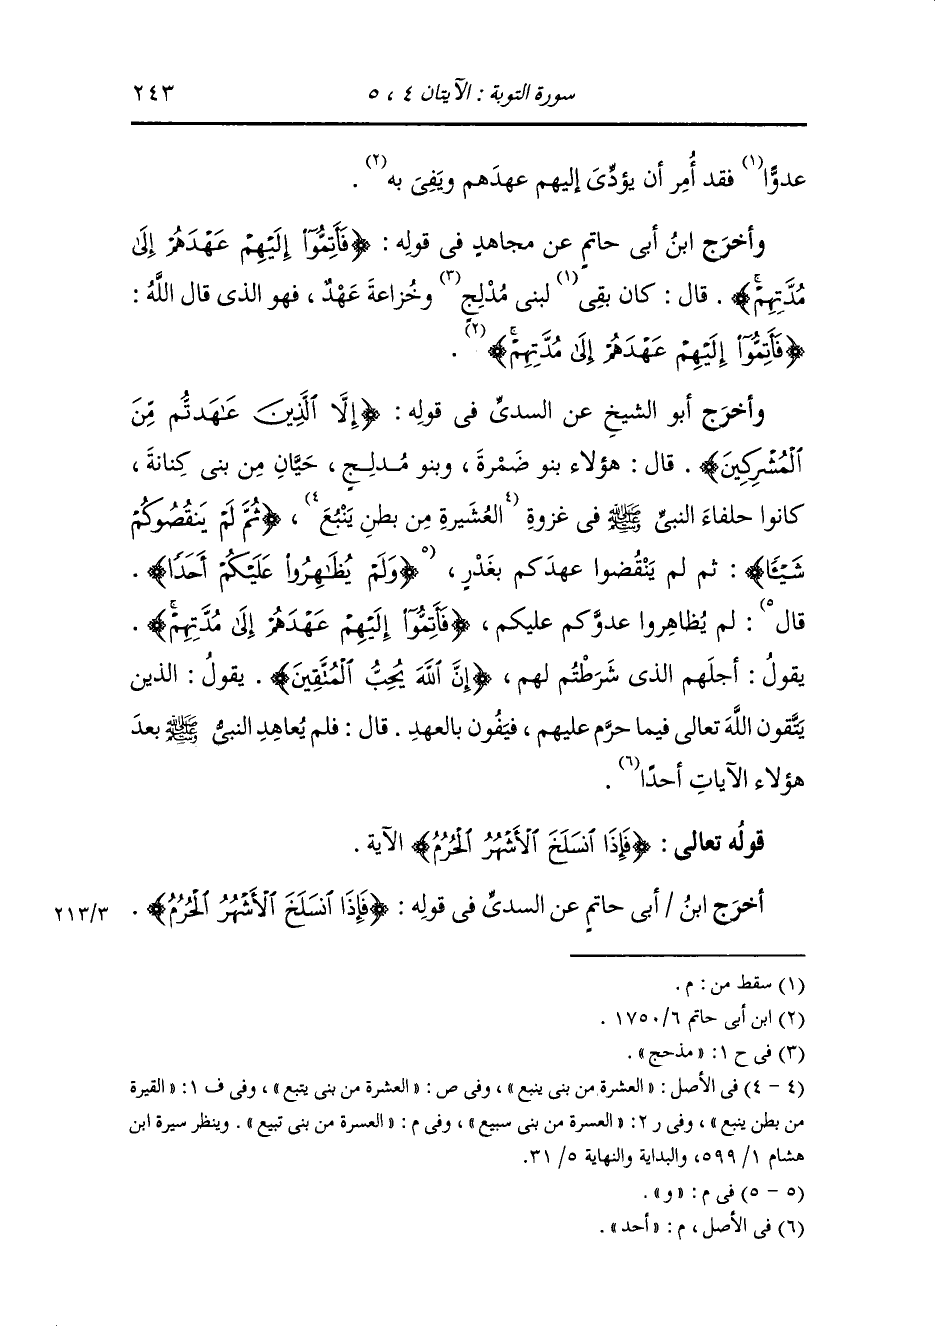 سورة التوبة : الآيتان ٤ ، ٥ ٢٤٣
عدوًّا(١) فقد أُمِر أن يؤدِّىَ إليهم عهدَهم ويَفِىَ به(٢) .
وأخرَج ابنُ أبى حاتمٍ عن مجاهدٍ فى قولِه : ﴿فَأَتِمُّوٓا۟ إِلَيْهِمْ عَهْدَهُمْ إِلَىٰ
مُدَّتِهِمْ ۚ﴾ . قال : كان بقِى(١) لبنى مُدْلِجٍ(٣) وخُزاعةَ عَهْدٌ ، فهو الذى قال اللَّهُ :
﴿فَأَتِمُّوٓا۟ إِلَيْهِمْ عَهْدَهُمْ إِلَىٰ مُدَّتِهِمْ ۚ﴾(٢) .
وأخرَج أبو الشيخِ عن السدىِّ فى قولِه : ﴿إِلَّا ٱلَّذِينَ عَـٰهَدتُّم مِّنَ
ٱلْمُشْرِكِينَ﴾ . قال : هؤلاء بنو ضَمْرةَ ، وبنو مُدلِجٍ ، حَيَّانِ مِن بنى كِنانةَ ،
كانوا حلفاءَ النبىِّ ﷺ فى غزوةِ (٤العُشَيرةِ مِن بطنِ يَنْبُعَ٤) ، ﴿ثُمَّ لَمْ يَنقُصُوكُمْ
شَيْـًٔا﴾ : ثم لم يَنْقُضوا عهدَكم بغَدْرٍ ، (٥﴿وَلَمْ يُظَـٰهِرُوا۟ عَلَيْكُمْ أَحَدًا﴾ .
قال٥) : لم يُظاهِروا عدوَّكم عليكم ، ﴿فَأَتِمُّوٓا۟ إِلَيْهِمْ عَهْدَهُمْ إِلَىٰ مُدَّتِهِمْ ۚ﴾ .
يقولُ : أجلَهم الذى شَرَطْتُم لهم ، ﴿إِنَّ ٱللَّهَ يُحِبُّ ٱلْمُتَّقِينَ﴾ . يقولُ : الذين
يَتَّقون اللَّهَ تعالى فيما حرَّم عليهم ، فيَفُون بالعهدِ . قال : فلم يُعاهِدِ النبىُّ ﷺ بعدَ
هؤلاء الآياتِ أحدًا(٦) .
قولُه تعالى : ﴿فَإِذَا ٱنسَلَخَ ٱلْأَشْهُرُ ٱلْحُرُمُ﴾ الآية .
أخرَج ابنُ / أبى حاتمٍ عن السدىِّ فى قولِه : ﴿فَإِذَا ٱنسَلَخَ ٱلْأَشْهُرُ ٱلْحُرُمُ﴾ . ٢١٣/٣
(١) سقط من : م .
(٢) ابن أبى حاتم ٦/ ١٧٥٠ .
(٣) فى ح ١: «مذحج» .
(٤ - ٤) فى الأصل : «العشرة من بنى ينبع» ، وفى ص : «العشرة من بنى يتبع» ، وفى ف ١: «القيرة
من بطن ينبع» ، وفى ر ٢: «العسرة من بنى سبيع» ، وفى م : «العسرة من بنى تبيع» . وينظر سيرة ابن
هشام ١/ ٥٩٩، والبداية والنهاية ٥/ ٣١.
(٥ - ٥) فى م : «و» .
(٦) فى الأصل ، م : «أحد» .